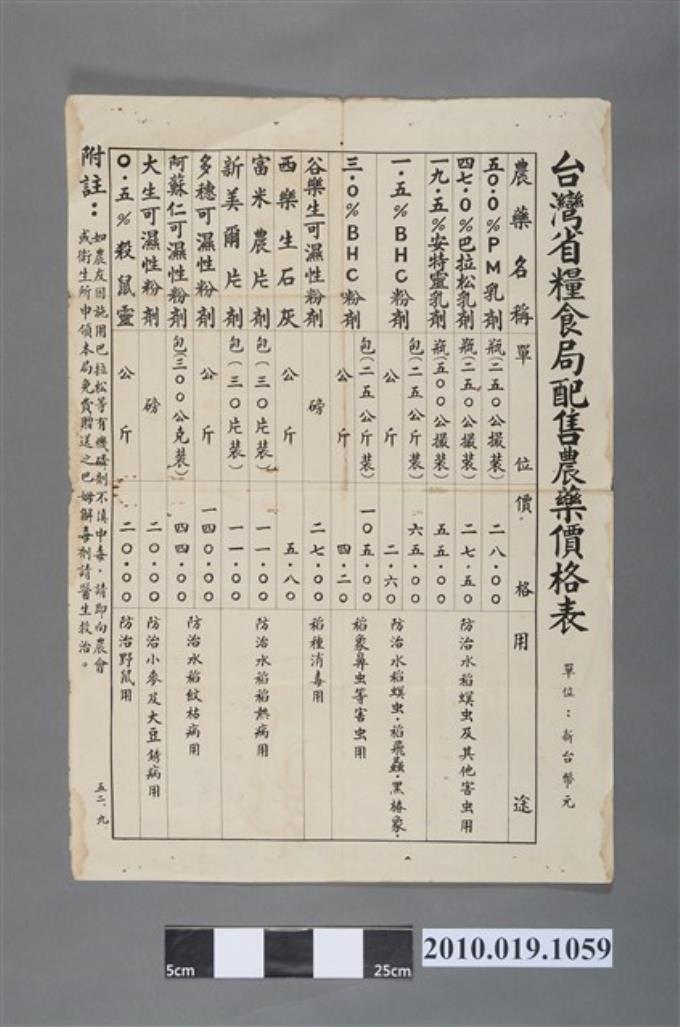 台灣省糧食局配售農藥價格表
單位：新台幣元
農藥名稱 單位 價格 用途
五〇·〇％PM乳劑 瓶(二五〇公撮裝) 二八·〇〇
四七·〇％巴拉松乳劑 瓶(二五〇公撮裝) 二七·五〇 防治水稻螟虫及其他害虫用
一九·五％安特靈乳劑 瓶(五〇〇公撮裝) 五五·〇〇
一·五％BHC粉劑 包(二五公斤裝) 六五·〇〇
公斤 二·六〇 防治水稻螟虫·稻飛蝨·黑椿象·
三·〇％BHC粉劑 包(二五公斤裝) 一〇五·〇〇 稻象鼻虫等害虫用
公斤 四·二〇
谷樂生可濕性粉劑 磅 二七·〇〇 稻種消毒用
西樂生石灰 公斤 五·八〇
富米農片劑 包(三〇片裝) 一一·〇〇 防治水稻稻熱病用
新美爾片劑 包(三〇片裝) 一一·〇〇
多穗可濕性粉劑 公斤 一四〇·〇〇
阿蘇仁可濕性粉劑 包(三〇〇公克裝) 四四·〇〇 防治水稻紋枯病用
大生可濕性粉劑 磅 二〇·〇〇 防治小麥及大豆銹病用
〇·五％殺鼠靈 公斤 二〇·〇〇 防治野鼠用
附註：如農友因施用巴拉松等有機磷劑不慎中毒，請即向農會
或衛生所申領本局免費贈送之巴姆解毒劑請醫生救治。
五二、九
5cm 25cm
2010.019.1059